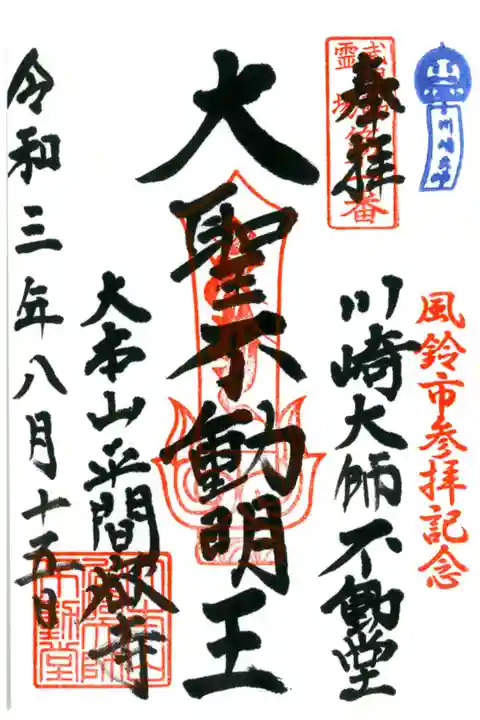 川崎大師
風鈴市参拝記念
奉拝
川崎大師不動堂
大聖不動明王
大本山平間嶽寺
令和三年八月十五日